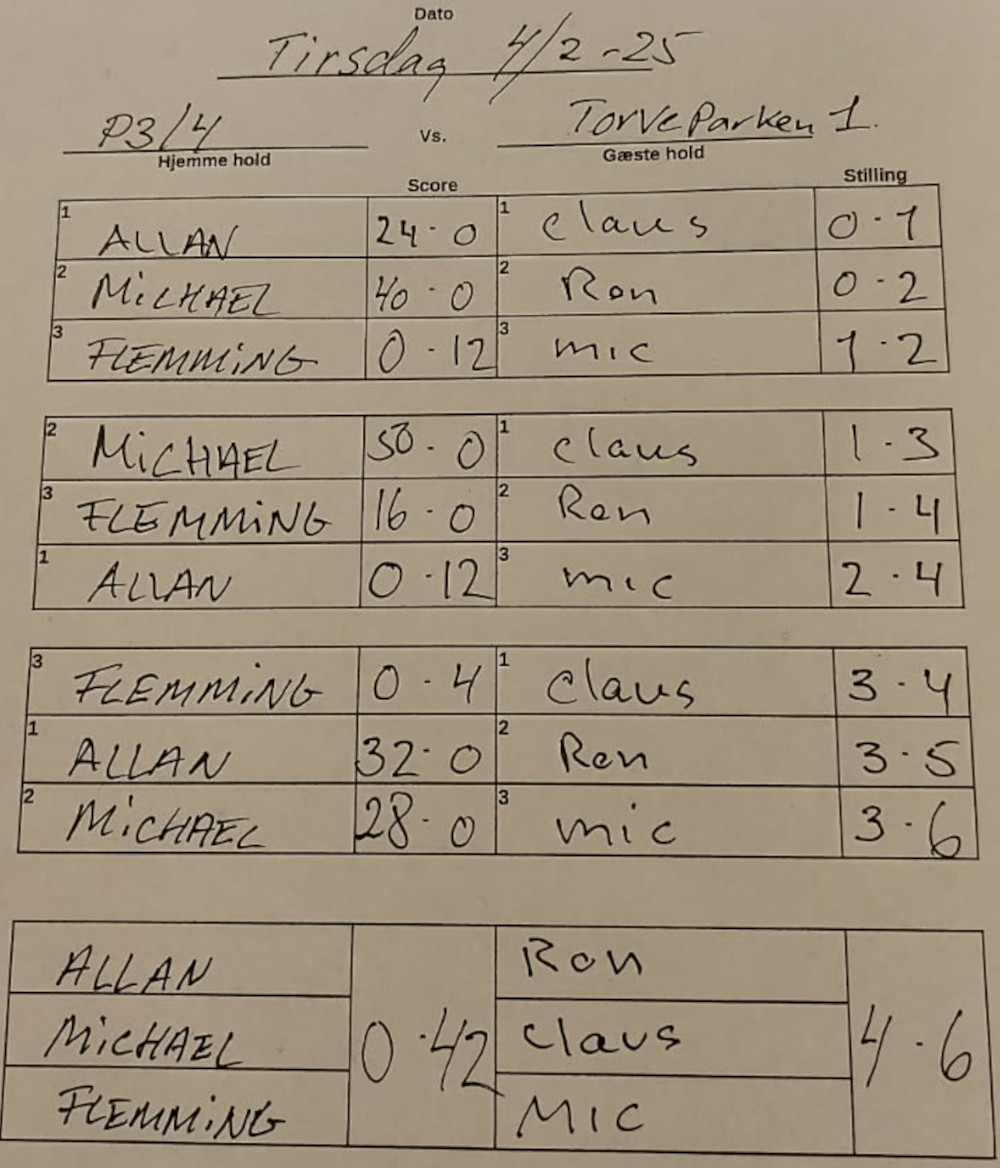 Dato
Tirsdag 4/2-25
P3/4 Vs. TorveParken 1.
Hjemme hold Gæste hold
Score Stilling
1 ALLAN 24-0 1 Claus 0-1
2 MiCHAEL 40-0 2 Ron 0-2
3 FLEMMiNG 0-12 3 mic 1-2
2 MiCHAEL 50-0 1 Claus 1-3
3 FLEMMiNG 16-0 2 Ron 1-4
1 ALLAN 0-12 3 mic 2-4
3 FLEMMiNG 0-4 1 Claus 3-4
1 ALLAN 32-0 2 Ron 3-5
2 MiCHAEL 28-0 3 mic 3-6
ALLAN Ron
MiCHAEL 0-42 Claus 4-6
FLEMMiNG MIC